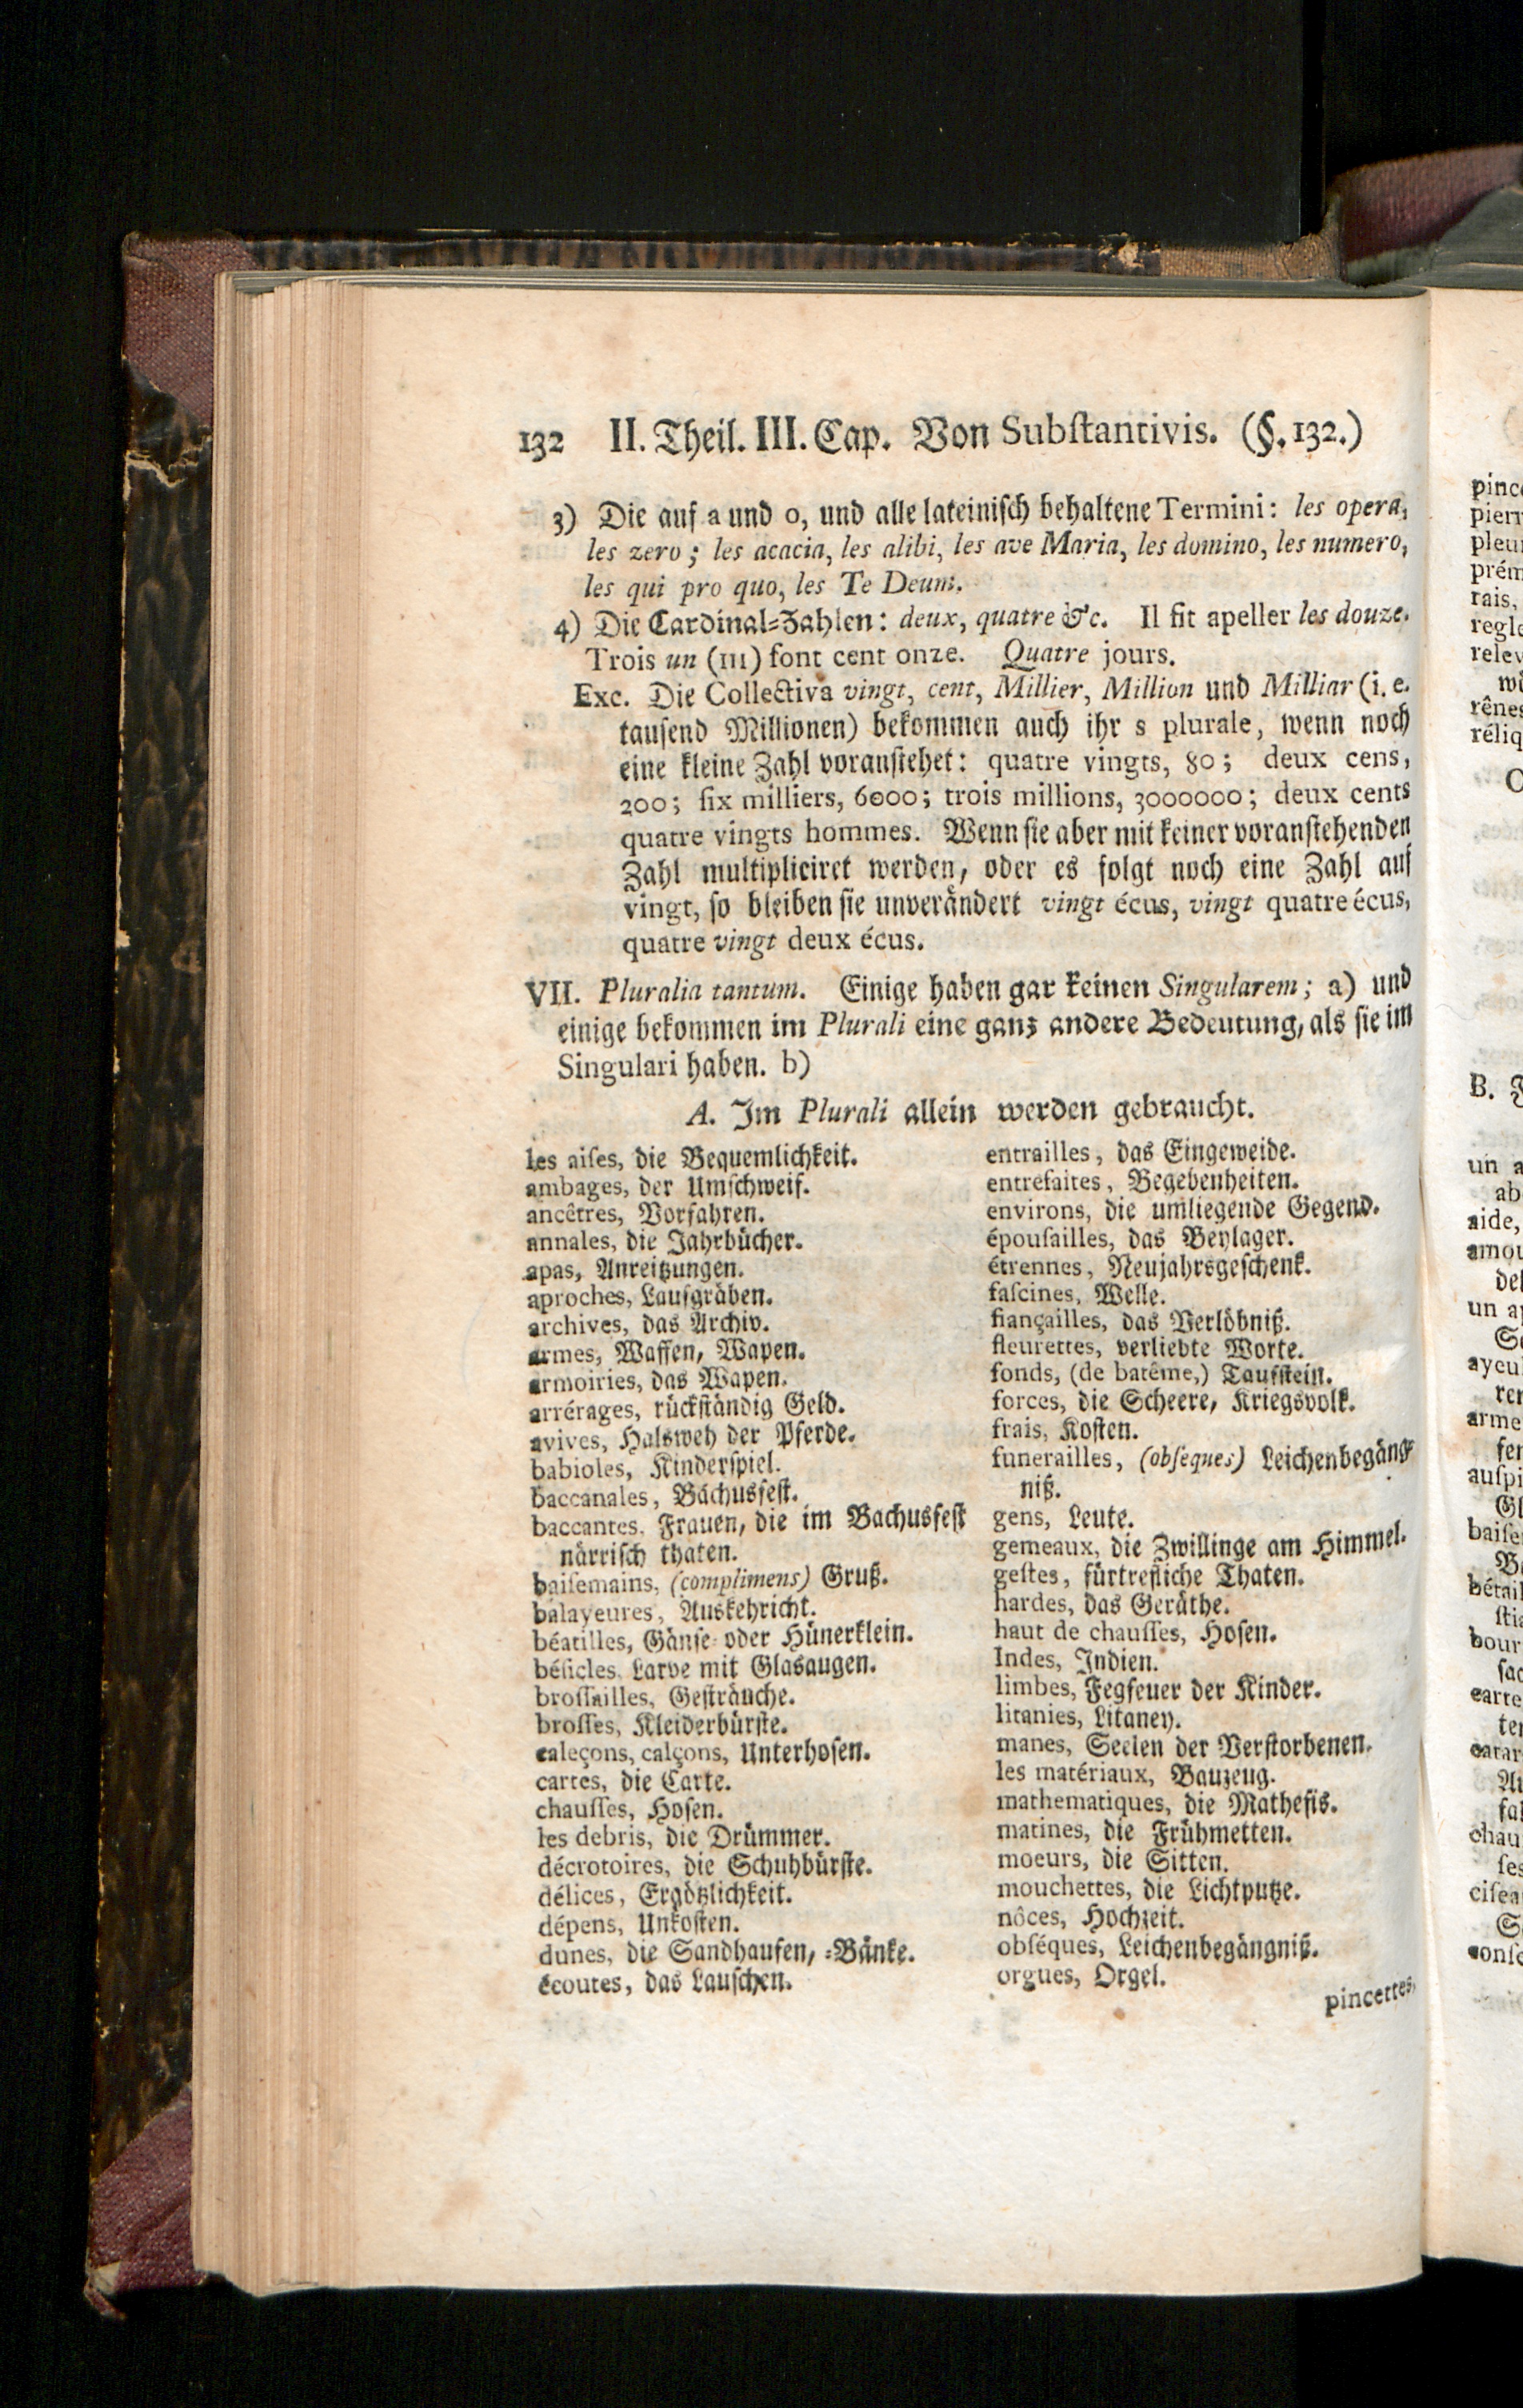 132 II. Theil. III. Cap. Von Subſtantivis. (§. 132.)
3) Die auf a und o, und alle lateiniſch behaltene Termini: les opera,
les zero; les acacia, les alibi, les ave Maria, les domino, les numero,
les qui pro quo, les Te Deum.
4) Die Cardinal-Zahlen: deux, quatre &c. Il fit apeller les douze.
Trois un (111) font cent onze. Quatre jours.
Exc. Die Collectiva vingt, cent, Millier, Million und Milliar (i. e.
tauſend Millionen) bekommen auch ihr s plurale, wenn noch
eine kleine Zahl voranſtehet: quatre vingts, 80; deux cens,
200; ſix milliers, 6000; trois millions, 3000000; deux cents
quatre vingts hommes. Wenn ſie aber mit keiner voranſtehenden
Zahl multipliciret werden, oder es folgt noch eine Zahl auf
vingt, ſo bleiben ſie unverändert vingt écus, vingt quatre écus,
quatre vingt deux écus.
VII. Pluralia tantum. Einige haben gar keinen Singularem; a) und
einige bekommen im Plurali eine ganz andere Bedeutung, als ſie im
Singulari haben. b)
A. Im Plurali allein werden gebraucht.
les aiſes, die Bequemlichkeit.
ambages, der Umſchweif.
ancêtres, Vorfahren.
annales, die Jahrbücher.
apas, Anreitzungen.
aproches, Laufgräben.
archives, das Archiv.
armes, Waffen, Wapen.
armoiries, das Wapen.
arrérages, rückſtändig Geld.
avives, Halsweh der Pferde.
babioles, Kinderſpiel.
baccanales, Bachusfeſt.
baccantes, Frauen, die im Bachusfeſt
närriſch thaten.
baiſemains, (complimens) Gruß.
balayeures, Auskehricht.
béatilles, Gänſe- oder Hünerklein.
béſicles, Larve mit Glasaugen.
broſſailles, Geſträuche.
broſſes, Kleiderbürſte.
caleçons, calçons, Unterhoſen.
cartes, die Carte.
chauſſes, Hoſen.
les debris, die Drümmer.
décrotoires, die Schuhbürſte.
délices, Ergötzlichkeit.
dépens, Unkoſten.
dunes, die Sandhaufen, -Bänke.
écoutes, das Lauſchen.
entrailles, das Eingeweide.
entrefaites, Begebenheiten.
environs, die umliegende Gegend.
épouſailles, das Beylager.
étrennes, Neujahrsgeſchenk.
faſcines, Welle.
fiançailles, das Verlöbniß.
fleurettes, verliebte Worte.
fonds, (de batême,) Taufſtein.
forces, die Scheere, Kriegsvolk.
frais, Koſten.
funerailles, (obſeques) Leichenbegäng-
niß.
gens, Leute.
gemeaux, die Zwillinge am Himmel.
geſtes, fürtrefliche Thaten.
hardes, das Geräthe.
haut de chauſſes, Hoſen.
Indes, Indien.
limbes, Fegfeuer der Kinder.
litanies, Litaney.
manes, Seelen der Verſtorbenen.
les matériaux, Bauzeug.
mathematiques, die Matheſis.
matines, die Frühmetten.
moeurs, die Sitten.
mouchettes, die Lichtputze.
nôces, Hochzeit.
obſéques, Leichenbegängniß.
orgues, Orgel.
pincettes,